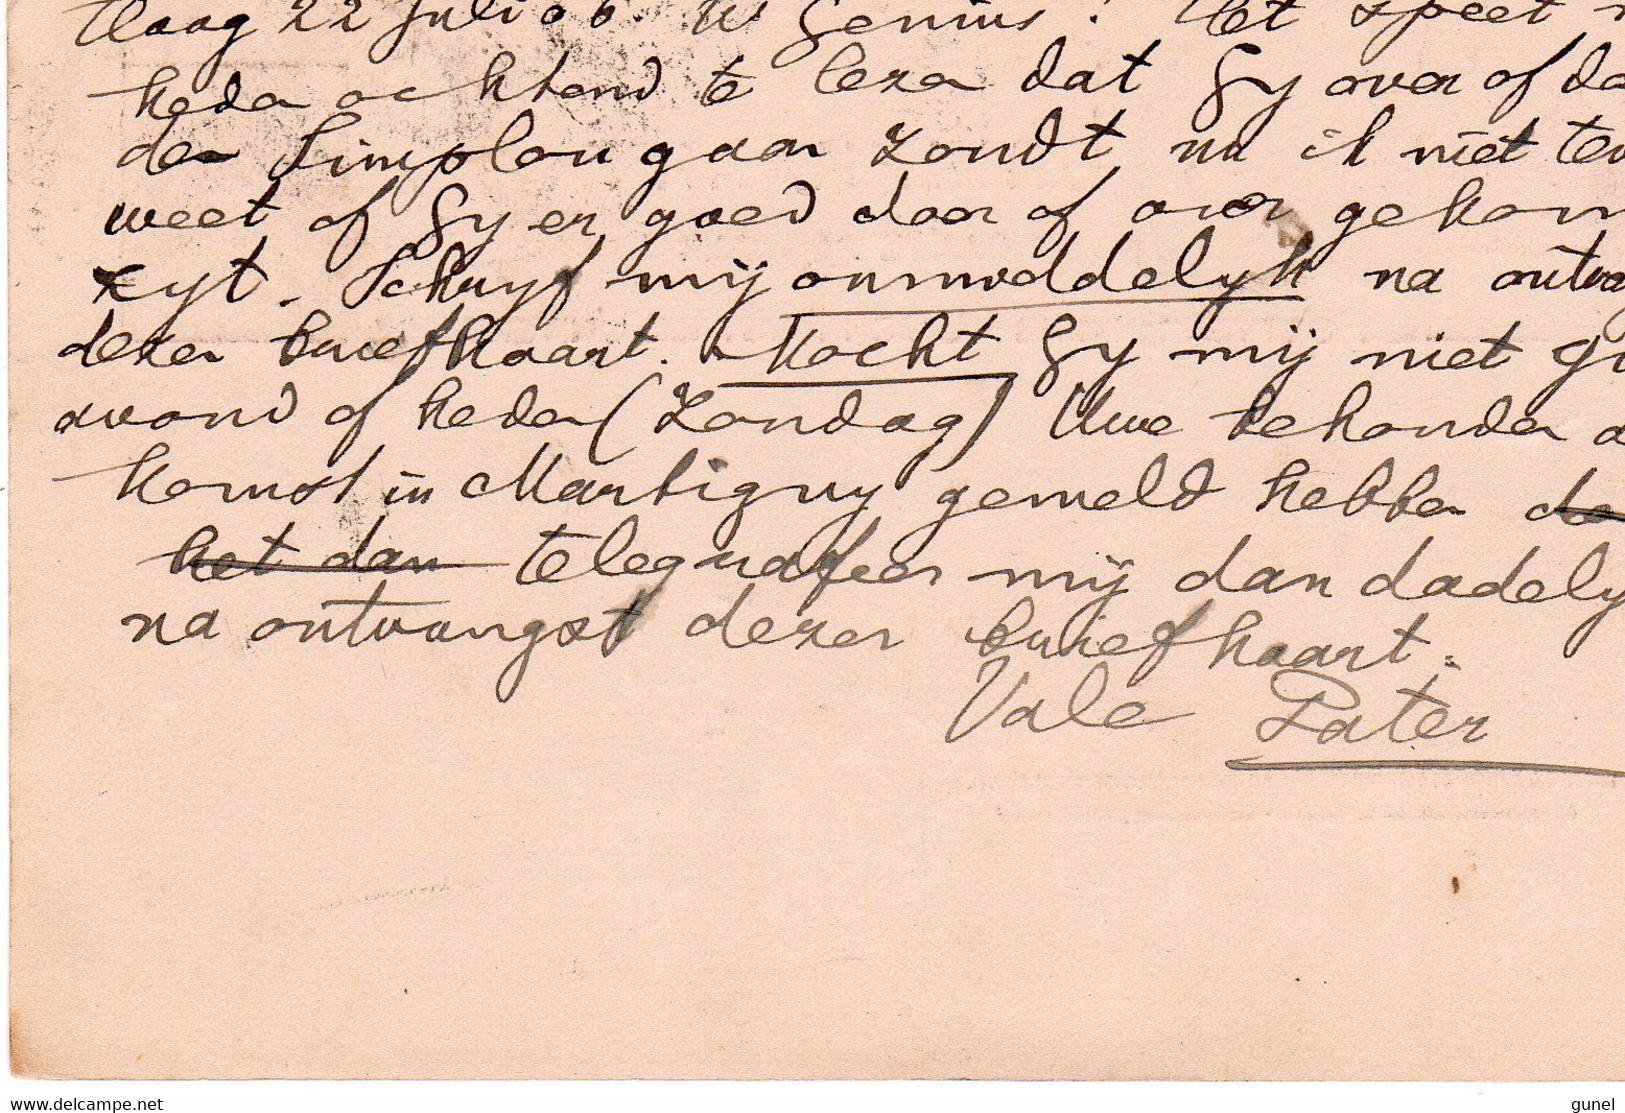 Haag 22 Juli 06. W Genius! Het speet
heden ochtend te lezen dat Gy over of do
den Simplon gaan zondt, nu ik niet
weet of Gy er goed door of over gekom
zyt. Schryf mij onmiddelyk na ontva
dezer briefkaart. Mocht Gy mij niet
avond of heden (Zondag) Uwe behouden a
komst in Martigny gemeld hebben
het dan telegrafeer mij dan dadely
na ontvangst dezer briefkaart.
Vale Pater
www.delcampe.net
gunel